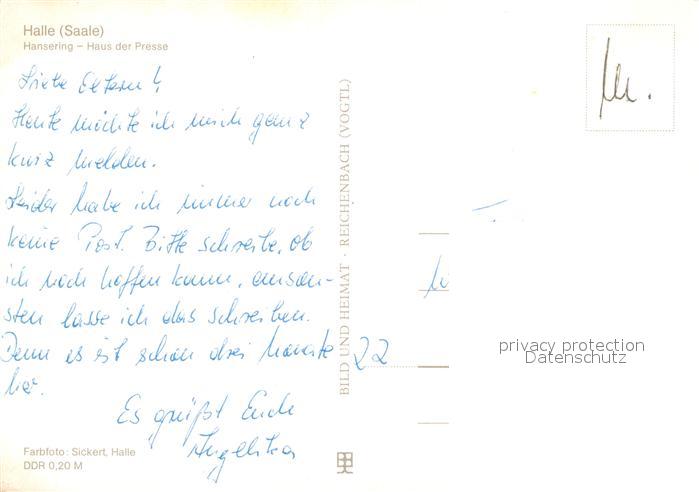 Halle (Saale)
Hansering – Haus der Presse
Liebe Eltern!
Heute möchte ich mich ganz
kurz melden.
Leider habe ich immer noch
keine Post. Bitte schreibe, ob
ich noch hoffen kann, anson-
sten lasse ich das schreiben.
Denn es ist schon drei Monate
her.
Es grüßt Euch
Angelika
Farbfoto: Sickert, Halle
DDR 0,20 M
BILD UND HEIMAT · REICHENBACH (VOGTL)
22
privacy protection
Datenschutz